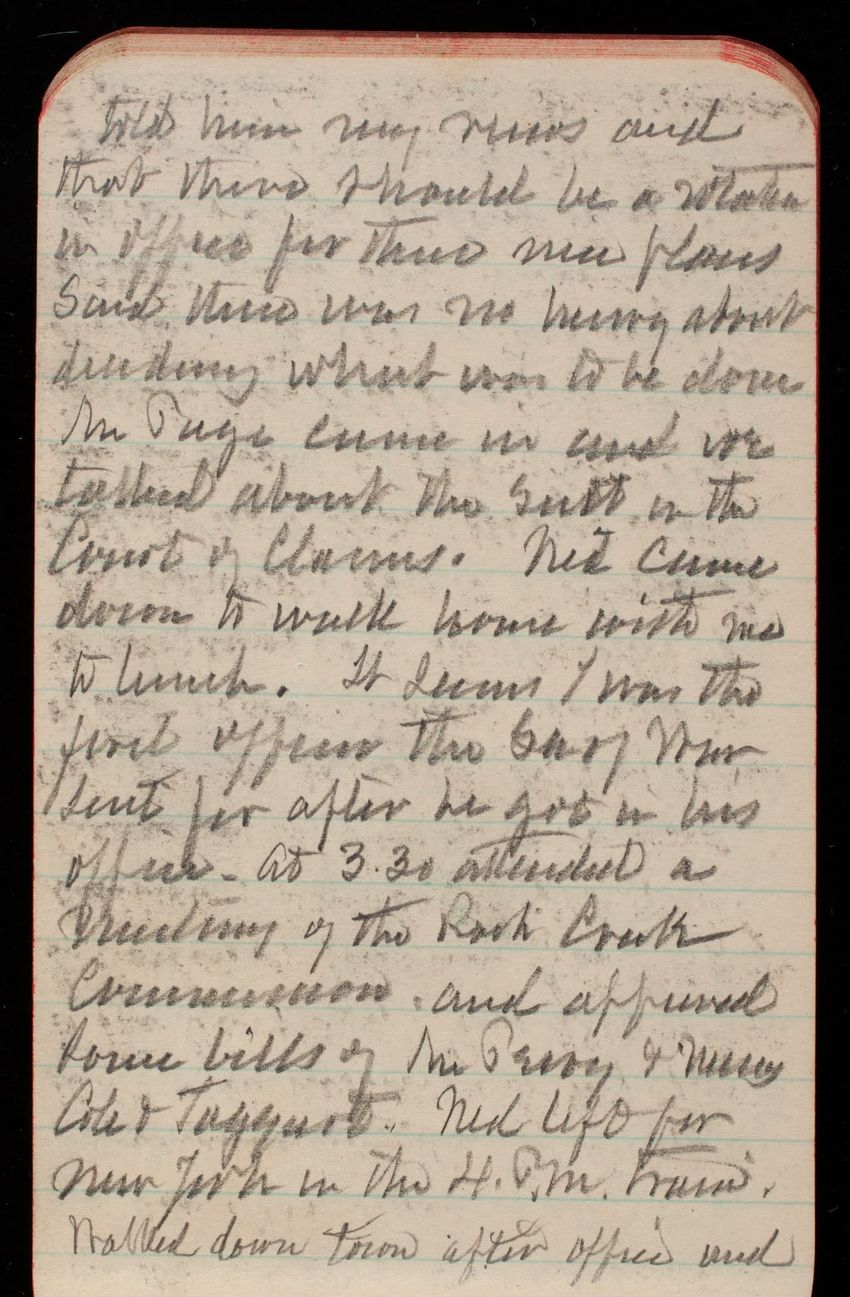 told him my views and
that there should be a rotation
in office for these nice places
Said there was no hurry about
deciding what was to be done
Mr Page came in and we
talked about the suit in the
Court of Claims. Ned came
down to walk home with me
to lunch. It seems I was the
first officer the Sec of War
sent for after he got in his
office - At 3.30 attended a
meeting of the Rock Creek
Commission. and approved
some bills of Mr Perry &
Cole & Taggart. Ned left for
New York in the 4. P.M. train.
Walked down town after office and